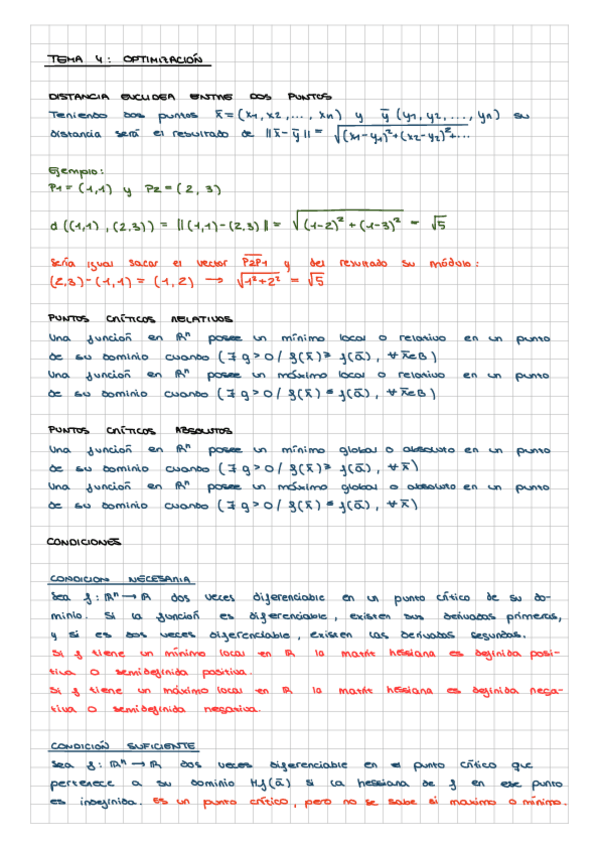 TEMA 4: OPTIMIZACIÓN
DISTANCIA EUCLIDEA ENTRE DOS PUNTOS
Teniendo dos puntos x̄ = (x1, x2, ..., xn) y ȳ (y1, y2, ..., yn) su
distancia será el resultado de ||x̄ - ȳ|| = √(x1-y1)²+(x2-y2)²+...
Ejemplo:
P1 = (1,1) y P2 = (2, 3)
d ((1,1) , (2,3)) = || (1,1)-(2,3) || = √(1-2)² + (1-3)² = √5
Sería igual sacar el vector P2P1 y del resultado su módulo:
(2,3)-(1,1) = (1,2) → √1²+2² = √5
PUNTOS CRÍTICOS RELATIVOS
Una función en ℝⁿ posee un mínimo local o relativo en un punto
de su dominio cuando (∃ g > 0 / f(x̄) ≥ f(ā), ∀ x̄∈B)
Una función en ℝⁿ posee un máximo local o relativo en un punto
de su dominio cuando (∃ g > 0 / f(x̄) ≤ f(ā), ∀ x̄∈B)
PUNTOS CRÍTICOS ABSOLUTOS
Una función en ℝⁿ posee un mínimo global o absoluto en un punto
de su dominio cuando (∃ g > 0 / f(x̄) ≥ f(ā), ∀ x̄)
Una función en ℝⁿ posee un máximo global o absoluto en un punto
de su dominio cuando (∃ g > 0 / f(x̄) ≤ f(ā), ∀ x̄)
CONDICIONES
CONDICION NECESARIA
Sea f: ℝⁿ → ℝ dos veces diferenciable en un punto crítico de su do-
minio. Si la función es diferenciable, existen sus derivadas primeras,
y si es dos veces diferenciable, existen las derivadas segundas.
Si f tiene un mínimo local en ℝ la matriz hessiana es definida posi-
tiva o semidefinida positiva.
Si f tiene un máximo local en ℝ la matriz hessiana es definida nega-
tiva o semidefinida negativa.
CONDICIÓN SUFICIENTE
Sea f: ℝⁿ → ℝ dos veces diferenciable en el punto crítico que
pertenece a su dominio Hf(ā) si la hessiana de f en ese punto
es indefinida. es un punto crítico, pero no se sabe si maximo o mínimo.